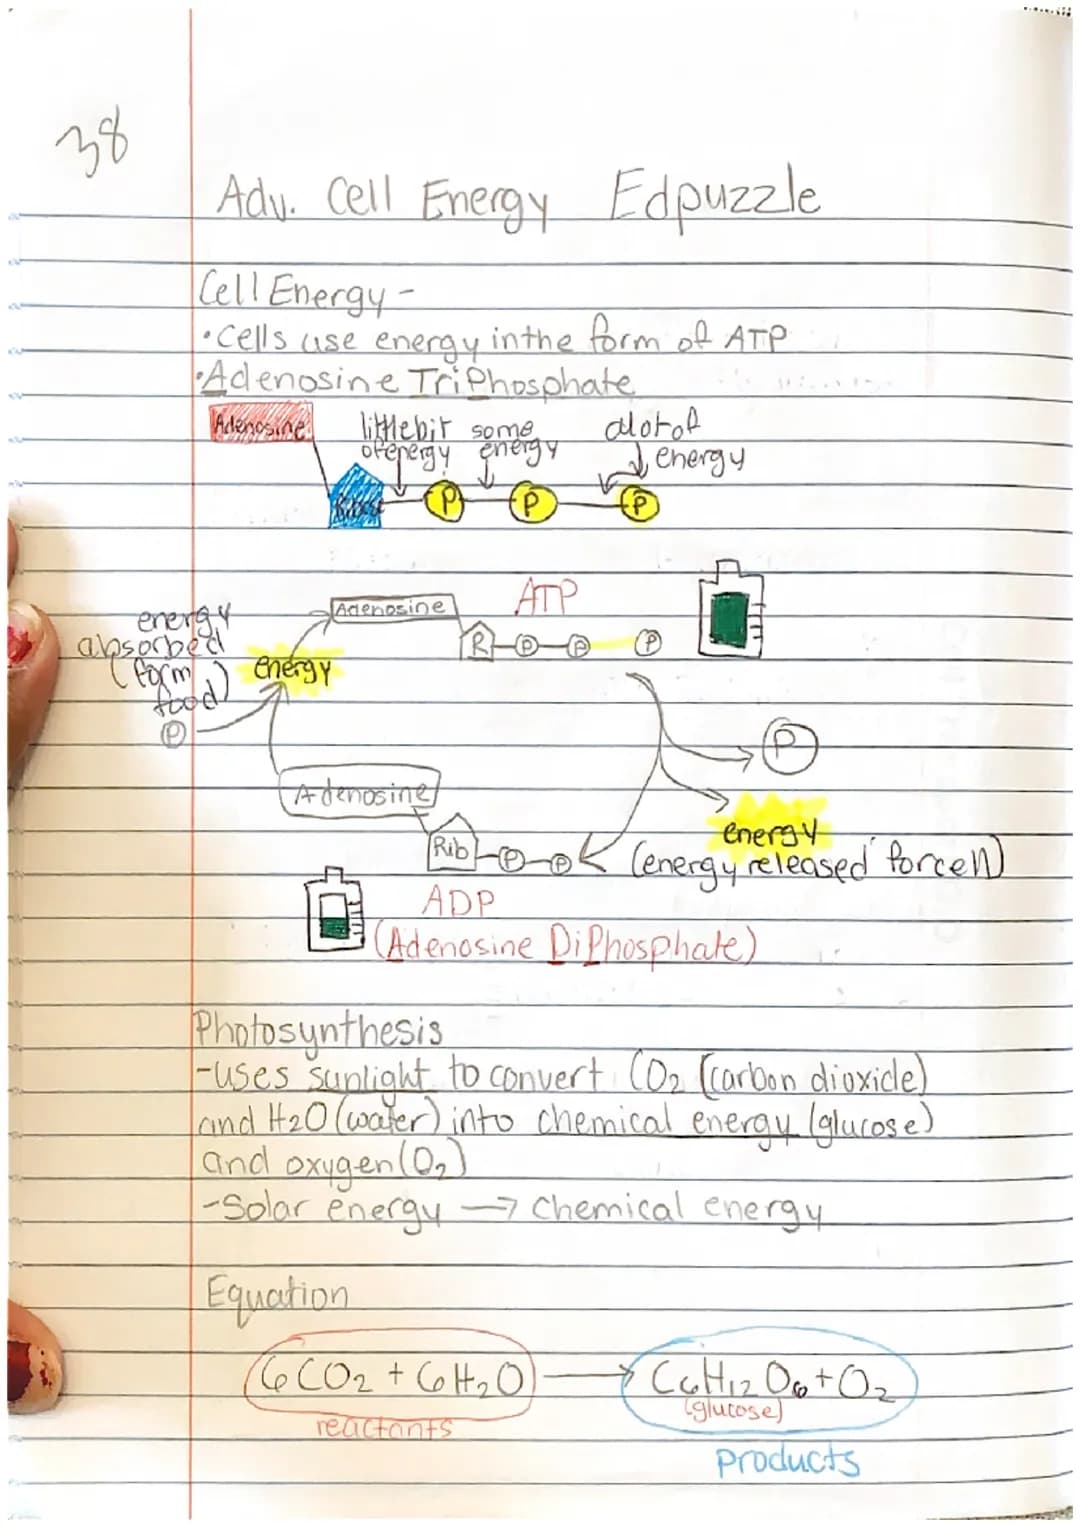 38
Adv. Cell Energy Edpuzzle
Cell Energy -
•Cells use energy in the form of ATP
•Adenosine TriPhosphate
Adenosine
little bit of energy
some energy
alot of energy
Ribose
P P P
ATP
energy absorbed (form food)
P
energy
Adenosine
R P P P
P
energy
(energy released for cell)
Adenosine
Rib P P
ADP
(Adenosine DiPhosphate)
Photosynthesis
-uses sunlight to convert CO₂ (carbon dioxide)
and H₂O (water) into chemical energy (glucose)
and oxygen (O₂)
-Solar energy → chemical energy
Equation
6CO₂ + 6H₂O → C₆H₁₂O₆ + O₂
(glucose)
reactants
products